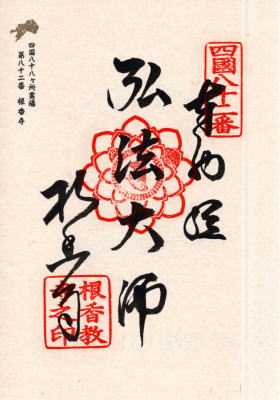 四国八十八ヶ所霊場
第八十二番 根香寺
四國八十二番
奉納経
弘法大師
根香寺
根香教
寺之印